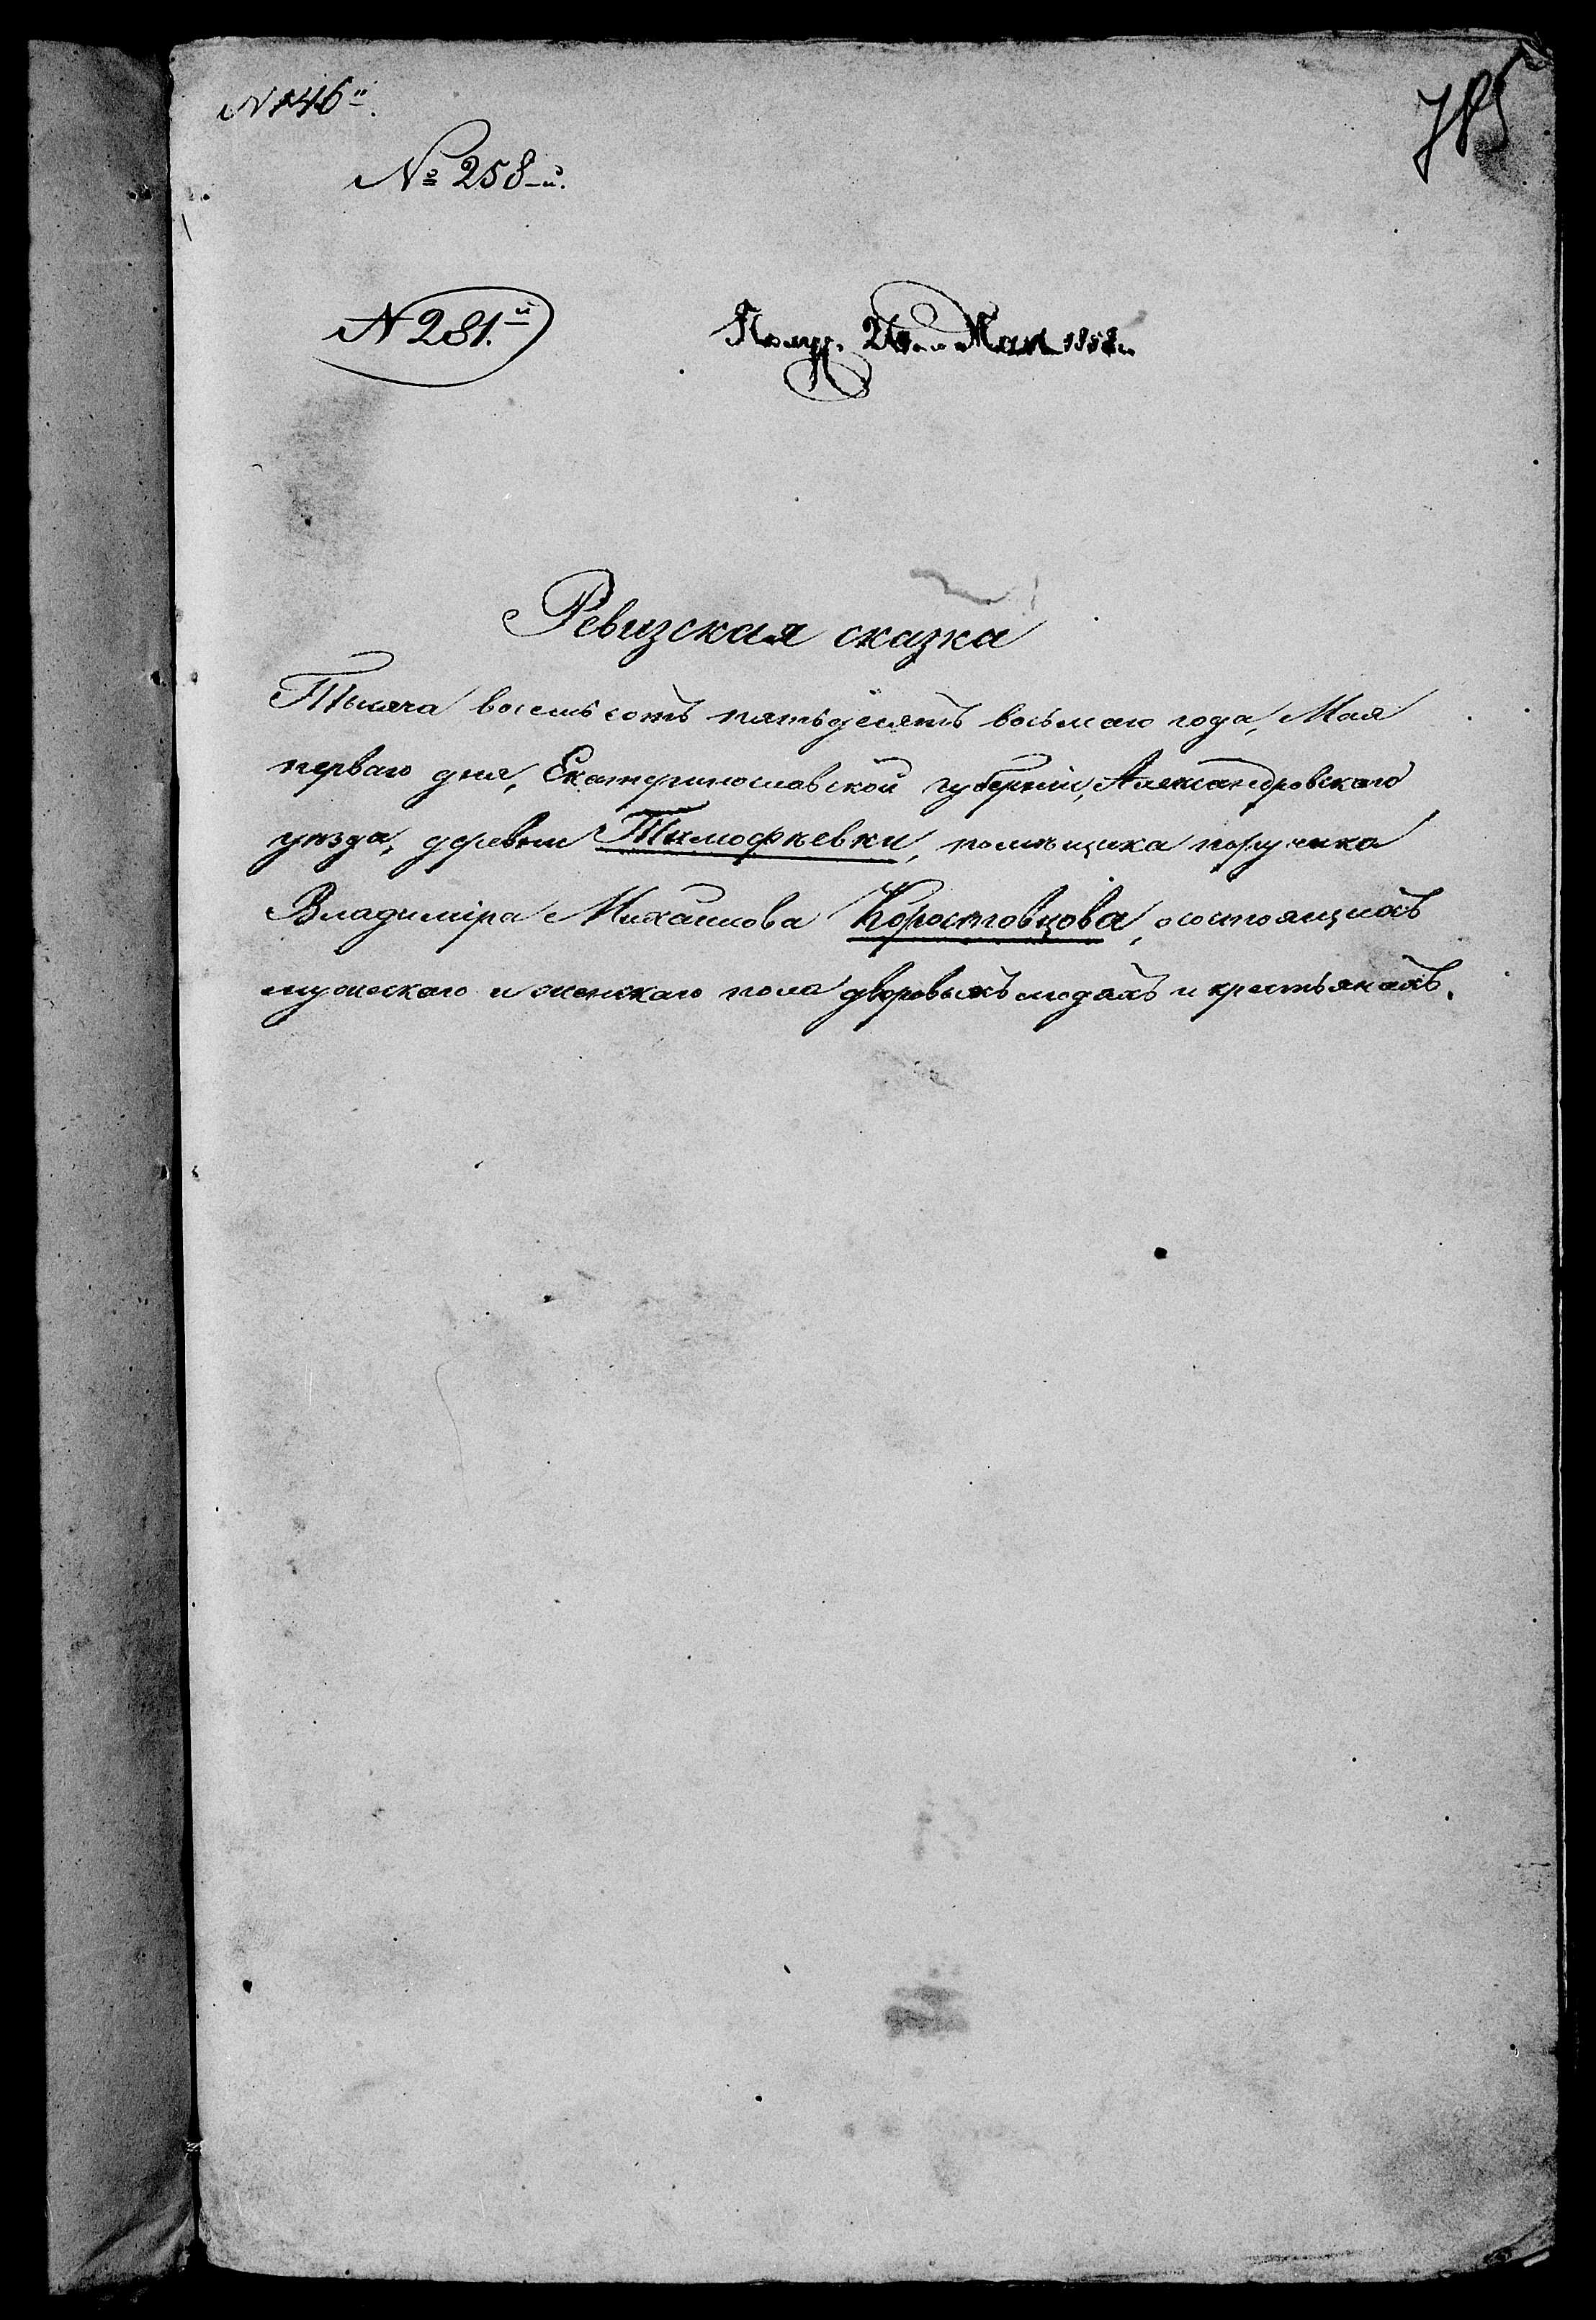 № 146й.
785
№ 258-й.
№ 281.й
Получ. 26го Мая 1858 г.
Ревизская сказка
Тысяча восемь сотъ пятьдесятъ восьмаго года, Мая
перваго дня, Екатеринославской губерніи, Александровскаго
уѣзда, деревни Тимофѣевки, помѣщика поручика
Владиміра Михайлова Коростовцова, о состоящихъ
мужескаго и женскаго пола дворовыхъ людяхъ и крестьянахъ.